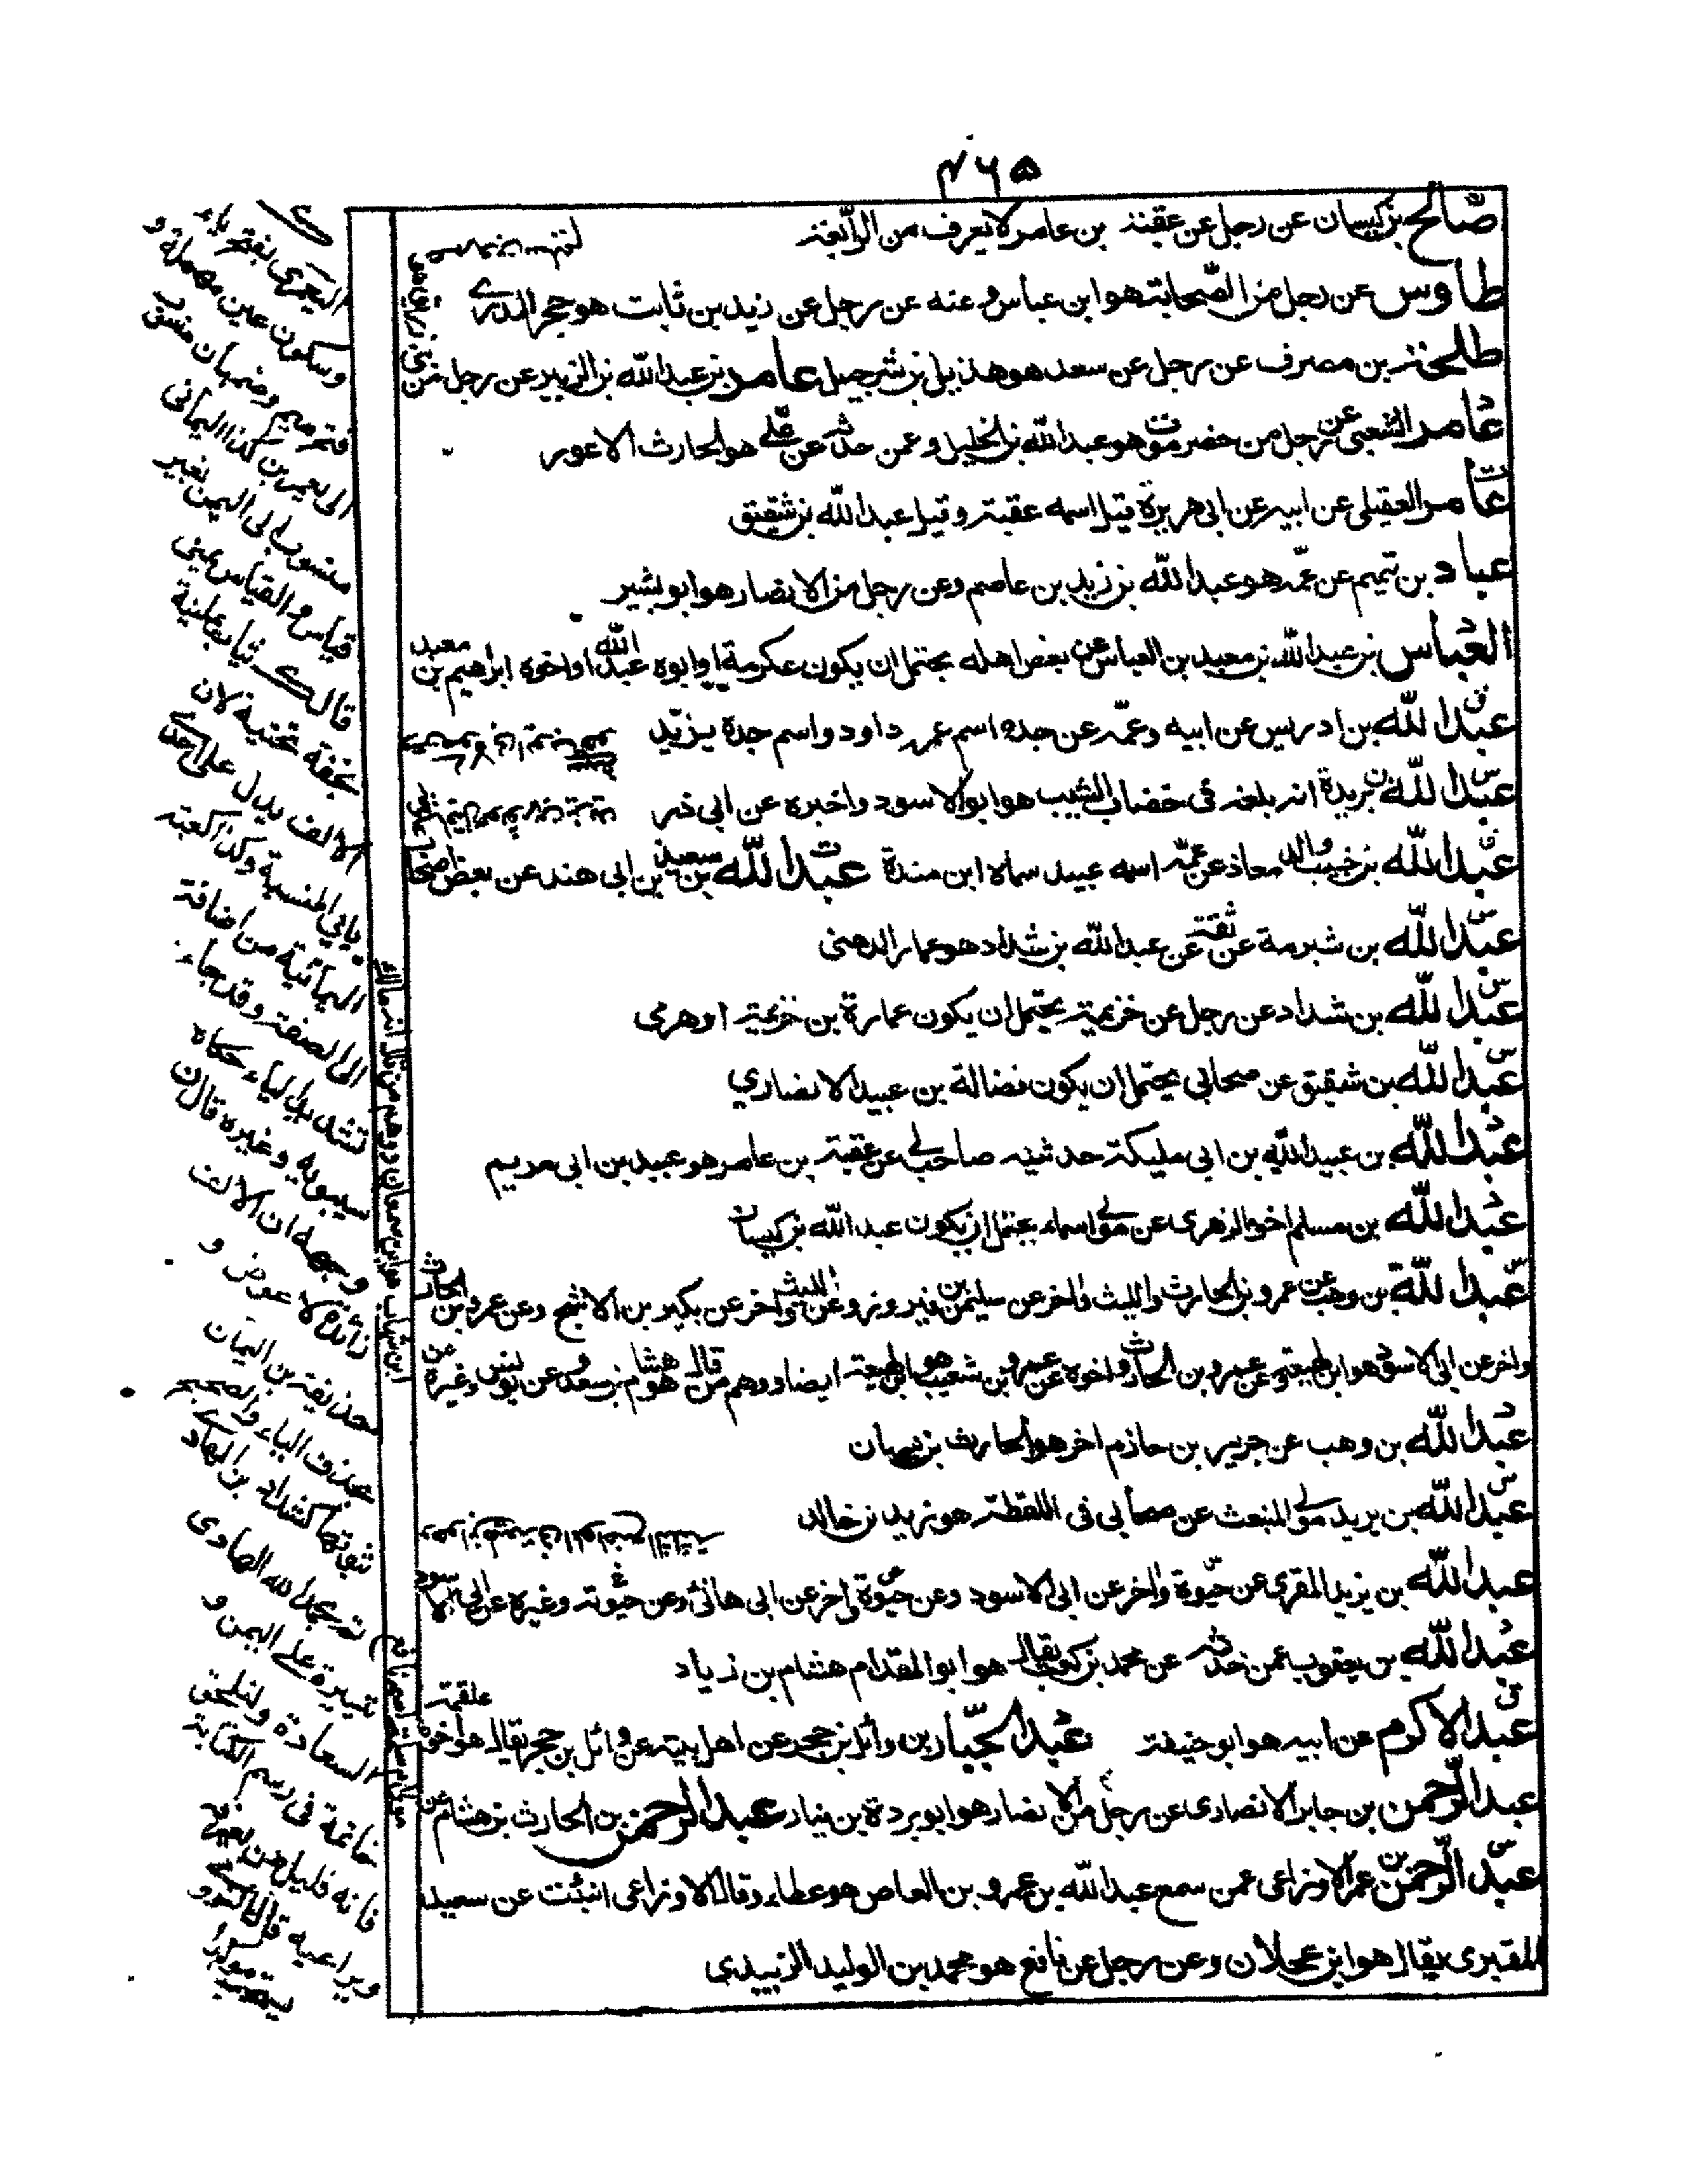 ۴۶۵
صالح بن كيسان عن رجل عن عقبة بن عامر لا يعرف من الرابعة
طاوس عن رجل من الصحابة هو ابن عباس وعنه عن رجل عن زيد بن ثابت هو حجر المدري
طلحة بن مصرف عن رجل عن سعد هو هذيل بن شرحبيل عامر بن عبد الله بن الزبير عن رجل من بني زريق هو
عامر الشعبي عن رجل من حضرموت هو عبد الله بن الخليل وعمن حدثه عن علي هو الحارث الاعور
عامر العقيلي عن ابيه عن ابي هريرة قيل اسمه عقبة وقيل عبد الله بن شقيق
عباد بن تميم عن عمه هو عبد الله بن زيد بن عاصم وعن رجل من الانصار هو ابو بشير
العباس بن عبد الله بن معبد بن العباس عن بعض اهله يحتمل ان يكون عكرمة او ابوه عبد الله او اخوه ابراهيم بن معبد
عبد الله بن ادريس عن ابيه وعمه عن جده اسم عمه داود واسم جده يزيد
عبد الله بن بريدة انه بلغه في خضاب الشيب هو ابو الاسود واخبره عن ابي ذر
عبد الله بن خبيب والد معاذ عن عمه اسمه عبيد سماه ابن مندة عبد الله بن سعيد بن ابي هند عن بعض اصحا
عبد الله بن شبرمة عن ثقة عن عبد الله بن شداد هو عمار الدهني
عبد الله بن شداد عن رجل عن خزيمة يحتمل ان يكون عمارة بن خزيمة او هرمي
عبد الله بن شقيق عن صحابي يحتمل ان يكون فضالة بن عبيد الانصاري
عبد الله بن عبيد الله بن ابي مليكة حدثنيه صاحب لي عن عقبة بن عامر هو عبيد بن ابي مريم
عبد الله بن مسلم اخو الزهري عن مولى اسماء يحتمل ان يكون عبد الله بن كيسان
عبد الله بن وهب عن عمرو بن الحارث والليث واخر عن سليمن بن وعن الليث واخر عن بكير بن الاشج وعن عمرو بن الحارث
واخر عن ابي الاسود هو ابن لهيعة وعن عمرو بن الحارث واخر عن عمرو بن شعيب هو ابن لهيعة ايضا ووهم من قال هو هشام بن سعد وعن يونس وغيره من
عبد الله بن وهب عن جرير بن حازم واخر هو الحارث بن نبهان
عبد الله بن يزيد مولى المنبعث عن صحابي في اللقطة هو زيد بن خالد
عبد الله بن يزيد المقري عن حيوة واخر عن ابي الاسود وعن حيوة واخر عن ابي هانئ وعن حيوة وغيره عن ابي الاسود
عبد الله بن يعقوب عمن حدثه عن محمد بن كعب يقال هو ابو المقدام هشام بن زياد
عبد الاكرم عن ابيه هو ابو حنيفة عبد الجبار بن وائل بن حجر عن اهل بيته عن وائل بن حجر يقال هو اخوه علقمة
عبد الرحمن بن جابر الانصاري عن رجل من الانصار هو ابو بردة بن نيار عبد الرحمن بن الحارث بن هشام عن
عبد الرحمن بن عمر الاوزاعي عمن سمع عبد الله بن عمرو بن العاص هو عطاء وقال الاوزاعي انبئت عن سعيد
المقبري يقال هو ابن عجلان وعن رجل عن نافع هو محمد بن الوليد الزبيدي
اليعمري بفتح ياء
وسكون عين مهملة و
فتح ميم وضمها منسوب
الى يعمر بن كذا اليماني
منسوب الى اليمن بغير
قياس والقياس يمني
قالت ثياب يمانية
بخفة تحتية لان
الالف بدل على احدى
يائي النسبة وكذا كعبة
اليمانية من اضافة
الى الصفة وقد جاء
تشديد الياء حكاه
سيبويه وغيره قال
وجهه ان الالف
زائدة لا عوض و
حذيفة بن اليمان
بحذف الياء والصحيح
ثبوتها كشداد بن الهاد
تم بحمد الله الهادي
تيسيره على اليمن و
السعادة ولنلحق
خاتمة في رسم الكتابة
فانه قليل من
ويراعيه قال